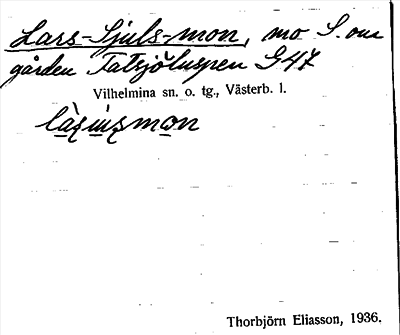 Lars-Sjuls-mon, mo S. om
gården Tatsjöluspen G47
Vilhelmina sn. o. tg., Västerb. l.
Thorbjörn Eliasson, 1936.